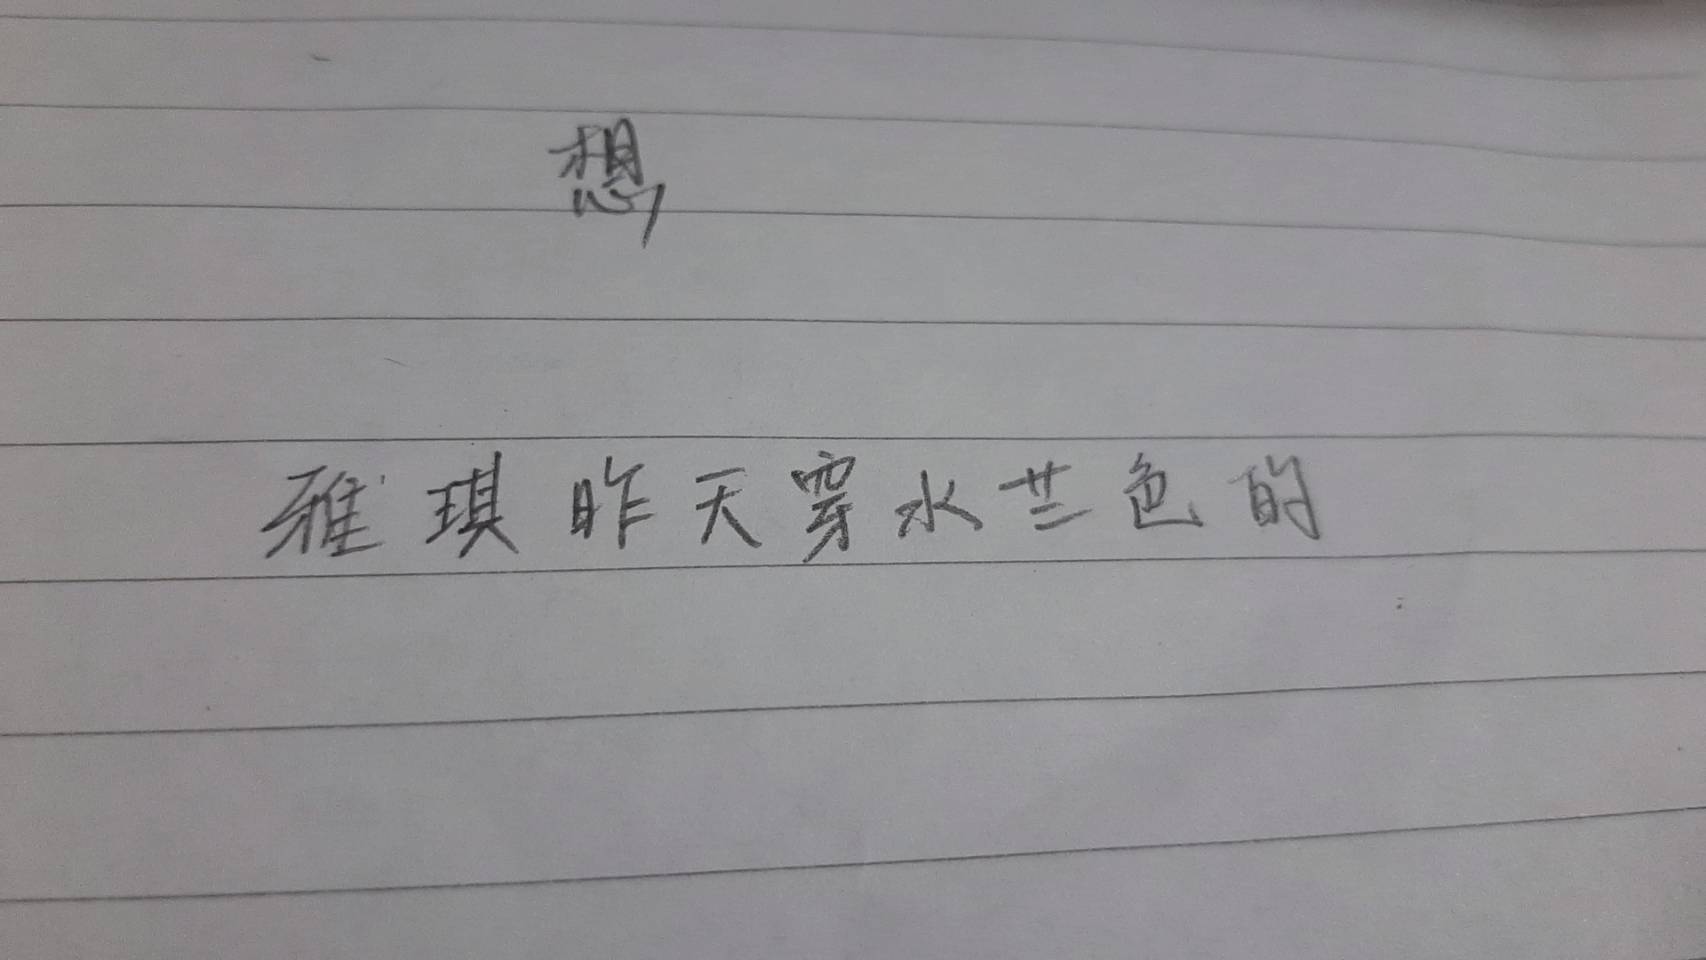 想，
雅琪昨天穿水芢色的